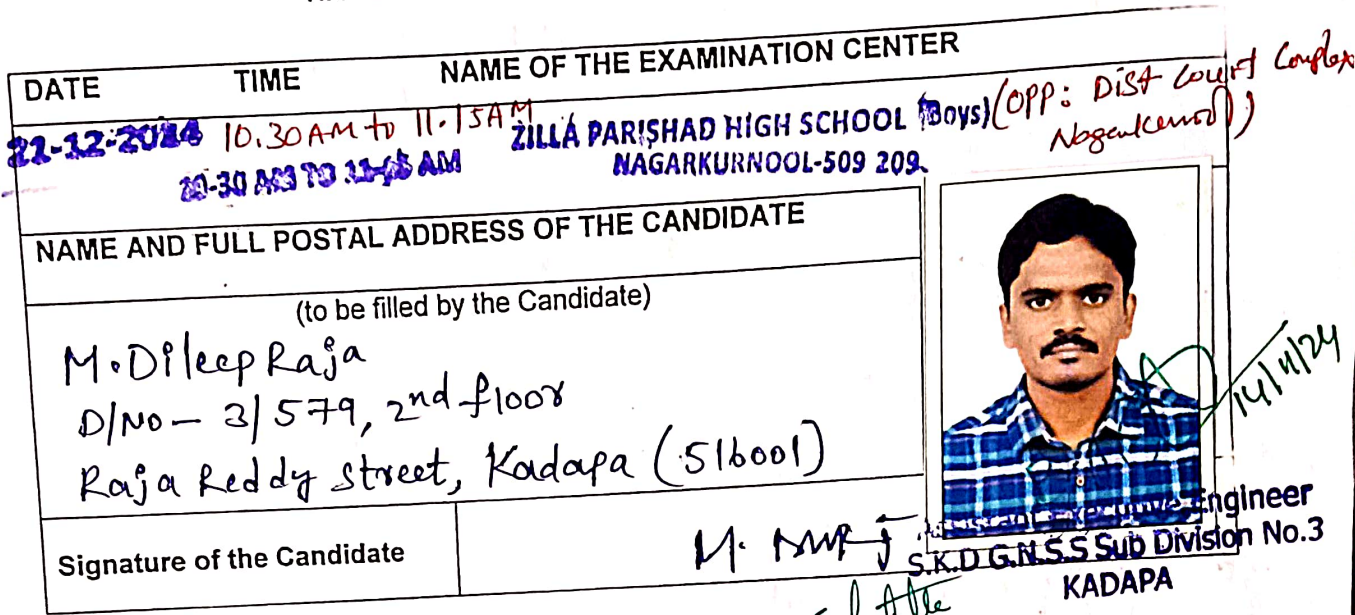 DATE TIME NAME OF THE EXAMINATION CENTER
10.30AM to 11.15AM ZILLA PARISHAD HIGH SCHOOL (Boys) (OPP: Dist Court Complex
10-30 AM TO AM NAGARKURNOOL-509 209.
NAME AND FULL POSTAL ADDRESS OF THE CANDIDATE
(to be filled by the Candidate)
M. Dileep Raja
D/NO - 3/579, 2nd floor
Raja Reddy Street, Kadapa (516001)
14/11/24
Signature of the Candidate M.
Executive Engineer
S.K.D G.N.S.S Sub Division No.3
KADAPA